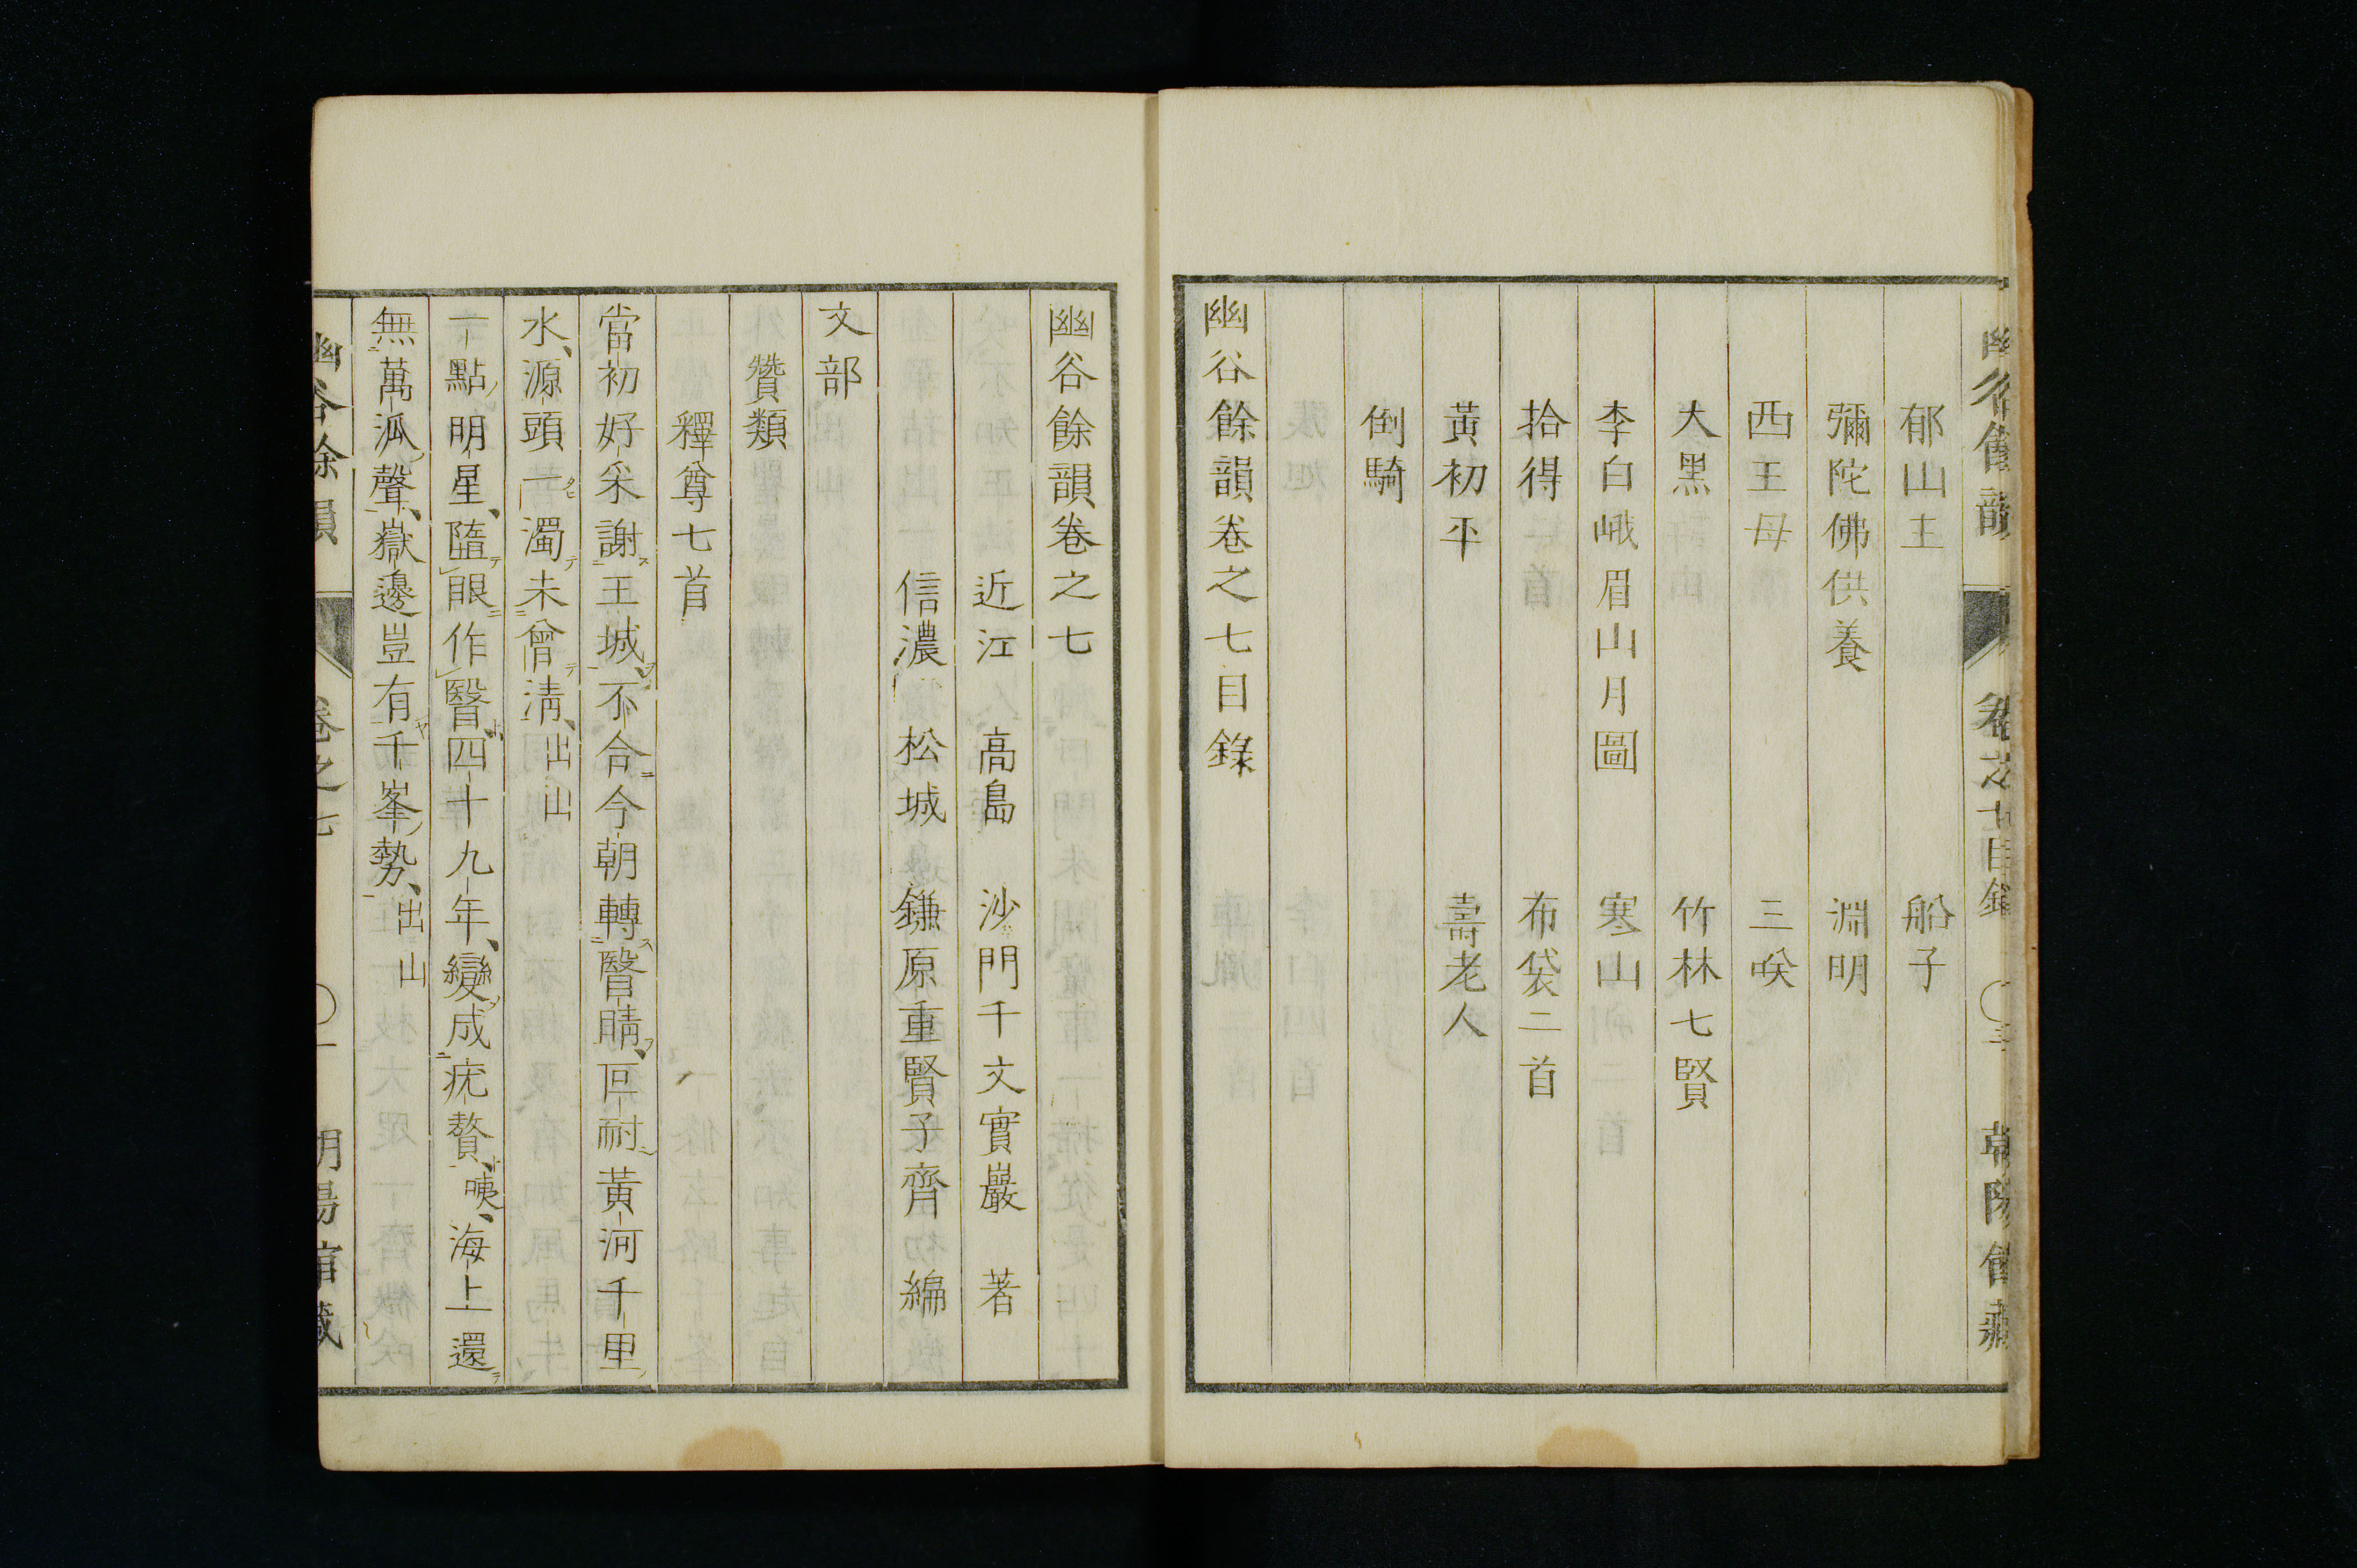 郁山主　船子
彌陀佛供養　淵明
西王母　三咲
大黑　竹林七賢
李白峨眉山月圖　寒山
拾得　布袋二首
黃初平　壽老人
倒騎
幽谷餘韻卷之七目錄
幽谷餘韻卷之七
近江　高島　沙門千文實巖　著
信濃　松城　鎌原重賢子齊　編
文部
贊類
釋尊七首
當初好采謝王城、不合今朝轉瞖睛、叵耐黃河千里
水、源頭一濁未曾淸、出山
一點明星、隨眼作瞖、四十九年、變成疣贅、咦、海上還
無萬派聲、嶽邊豈有千峯勢、出山
幽谷餘韻　卷之七　〇一　朝陽館藏